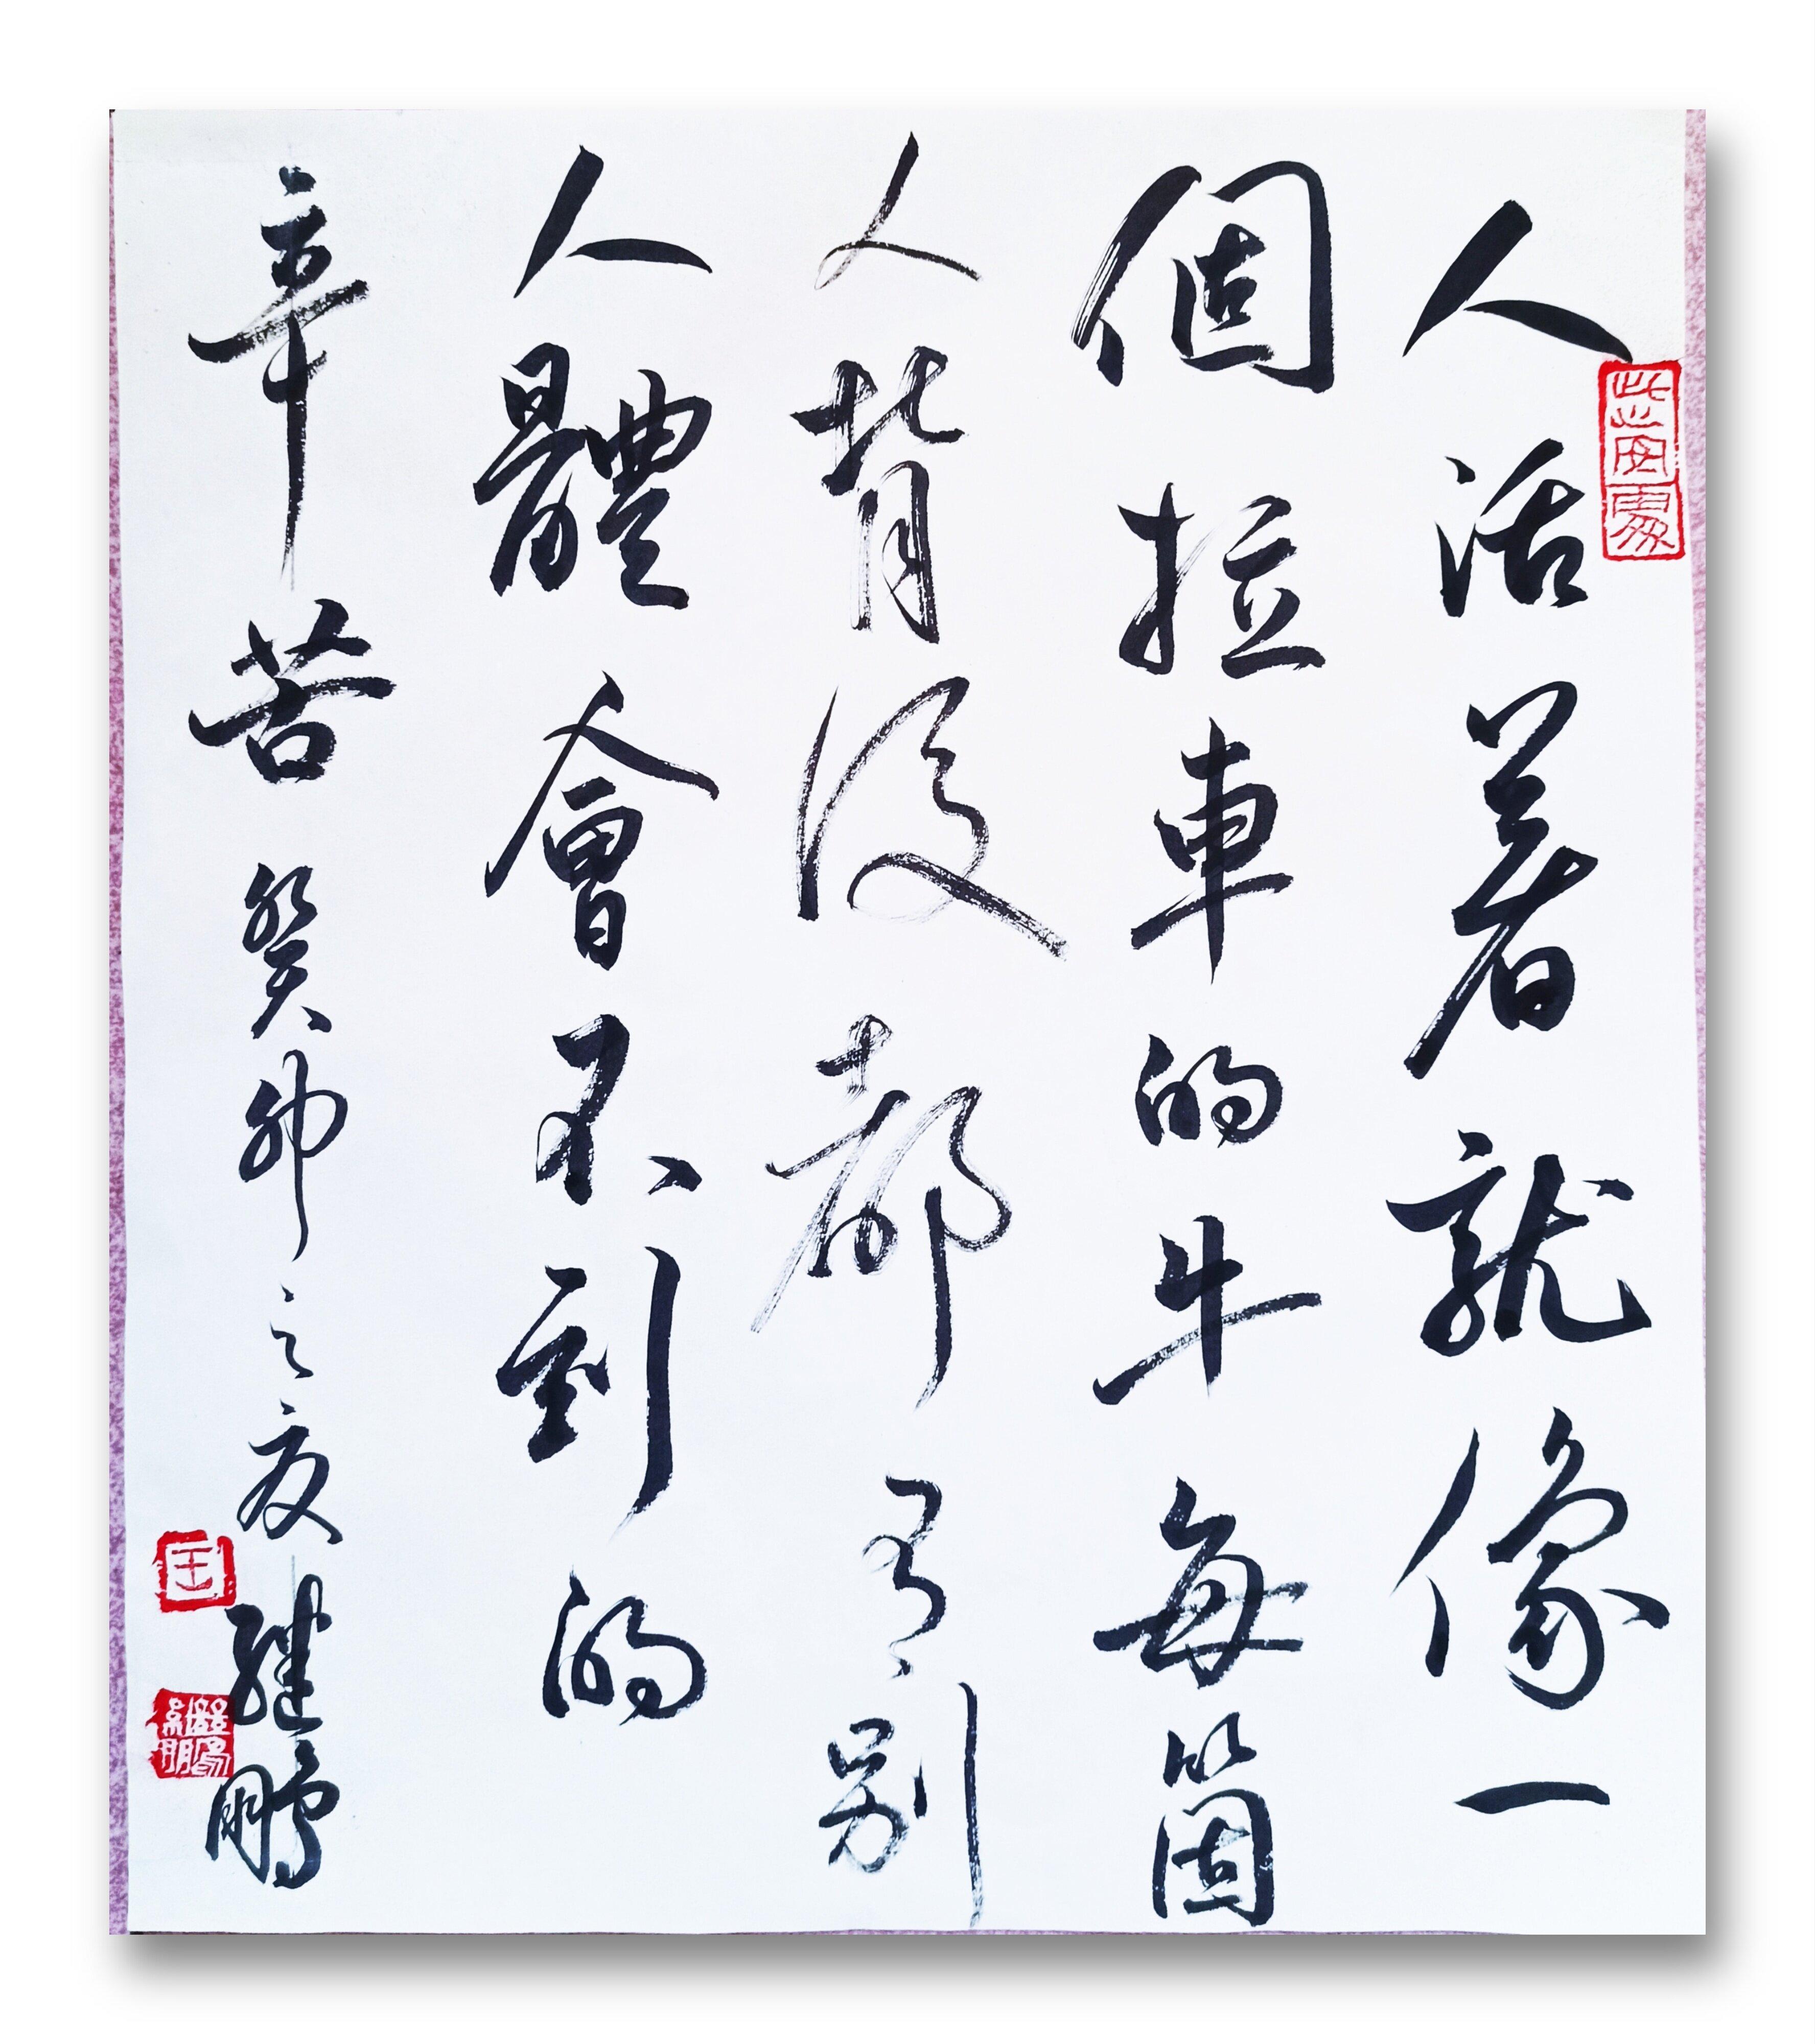 人活著就像一
個拉車的牛每箇
人背後都有別
人體會不到的
辛苦 癸卯之夏 繼鵬
王
繼鵬